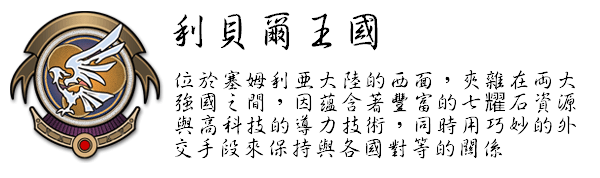 利貝爾王國
位於塞姆利亜大陸的西面，夾雜在両大
強國之間，因蘊含著豐富的七耀石資源
與高科技的導力技術，同時用巧妙的外
交手段來保持與各國對等的關係